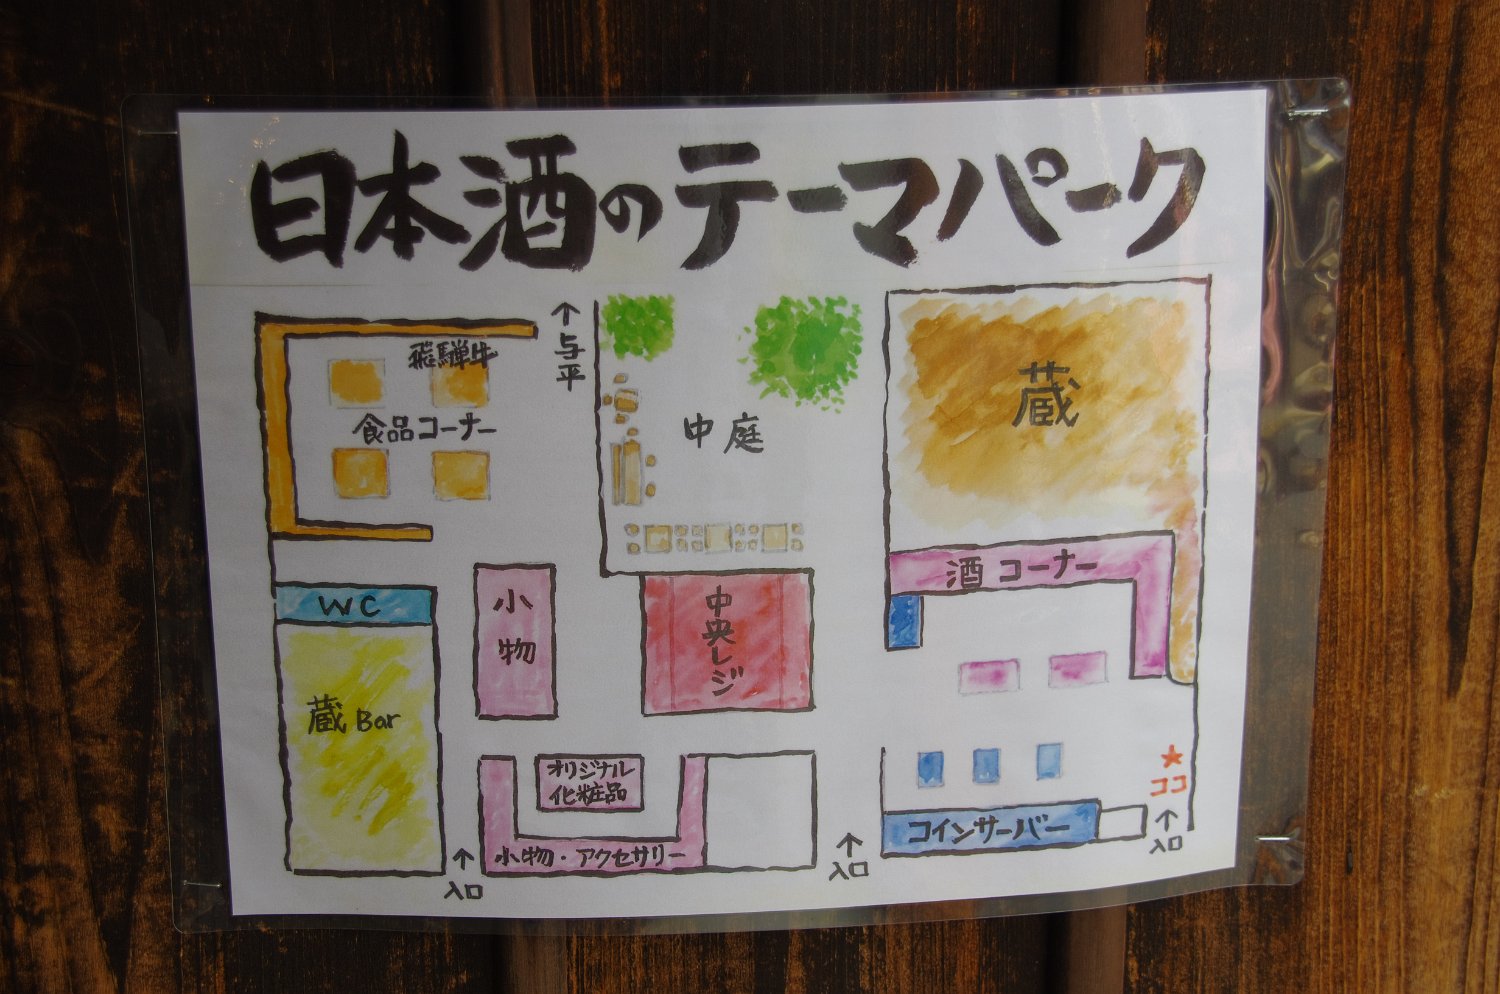 日本酒のテーマパーク
飛騨牛
食品コーナー
↑
与平
中庭
蔵
酒コーナー
WC
蔵Bar
小物
中央レジ
オリジナル
化粧品
小物・アクセサリー
コインサーバー
★
ココ
↑
入口
↑
入口
↑
入口